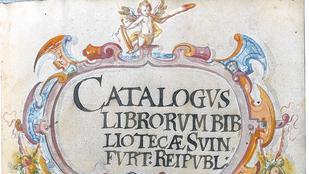 CATALOGVS
LIBRORVM BIB
LIOTECÆ SVIN
FVRT: REIPVBL: